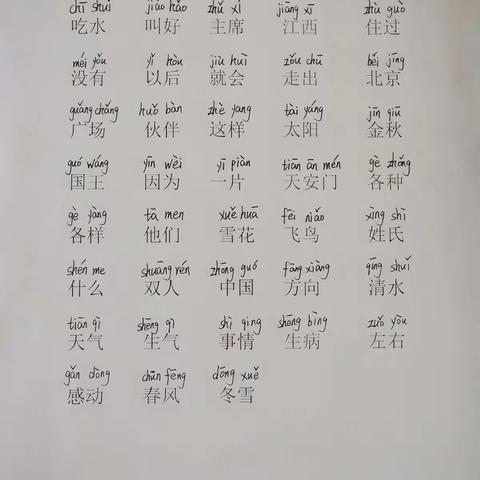 chī shuǐ jiào hǎo zhǔ xí jiāng xī zhù guò
吃水 叫好 主席 江西 住过
méi yǒu yǐ hòu jiù huì zǒu chū běi jīng
没有 以后 就会 走出 北京
guǎng chǎng huǒ bàn zhè yang tài yáng jīn qiū
广场 伙伴 这样 太阳 金秋
guó wáng yīn wèi yī piàn tiān ān mén gè zhǒng
国王 因为 一片 天安门 各种
gè yàng tā men xuě huā fēi niǎo xìng shì
各样 他们 雪花 飞鸟 姓氏
shén me shuāng rén zhōng guó fāng xiàng qīng shuǐ
什么 双人 中国 方向 清水
tiān qì shēng qì shì qing shēng bìng zuǒ yòu
天气 生气 事情 生病 左右
gǎn dòng chūn fēng dōng xuě
感动 春风 冬雪